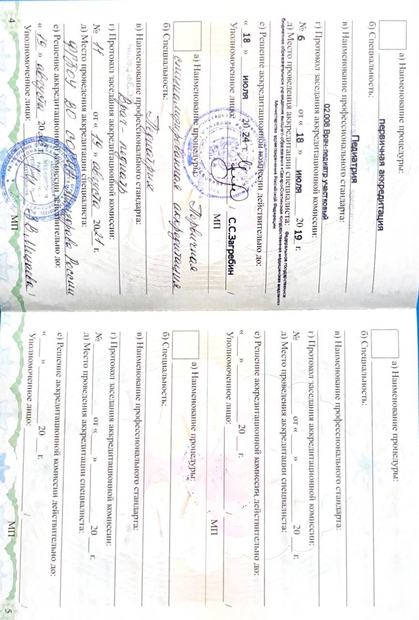 а) Наименование процедуры:
первичная аккредитация
б) Специальность:
Педиатрия
в) Наименование профессионального стандарта:
02.008 Врач-педиатр участковый
г) Протокол заседания аккредитационной комиссии:
№ 6 от « 18 » июля 20 19 г.
д) Место проведения аккредитации специалиста:
Министерства здравоохранения Российской Федерации
е) Решение аккредитационной комиссии действительно до:
« 18 » июля 20 24 г.
Уполномоченное лицо: С.С.Загребин
МП
а) Наименование процедуры: Первичная
специализированная аккредитация
б) Специальность:
в) Наименование профессионального стандарта:
Врач-
г) Протокол заседания аккредитационной комиссии:
№ 11 от « 19 » августа 2021 г.
д) Место проведения аккредитации специалиста:
ФГБОУ ВО Минздрава России
е) Решение аккредитационной комиссии действительно до:
« 19 » августа 20
Уполномоченное лицо:
МП
4
а) Наименование процедуры:
б) Специальность:
в) Наименование профессионального стандарта:
г) Протокол заседания аккредитационной комиссии:
№ от « » 20 г.
д) Место проведения аккредитации специалиста:
е) Решение аккредитационной комиссии действительно до:
« » 20 г.
Уполномоченное лицо: / /
МП
а) Наименование процедуры:
б) Специальность:
в) Наименование профессионального стандарта:
г) Протокол заседания аккредитационной комиссии:
№ от « » 20 г.
д) Место проведения аккредитации специалиста:
е) Решение аккредитационной комиссии действительно до:
« » 20 г.
Уполномоченное лицо: / /
МП
5